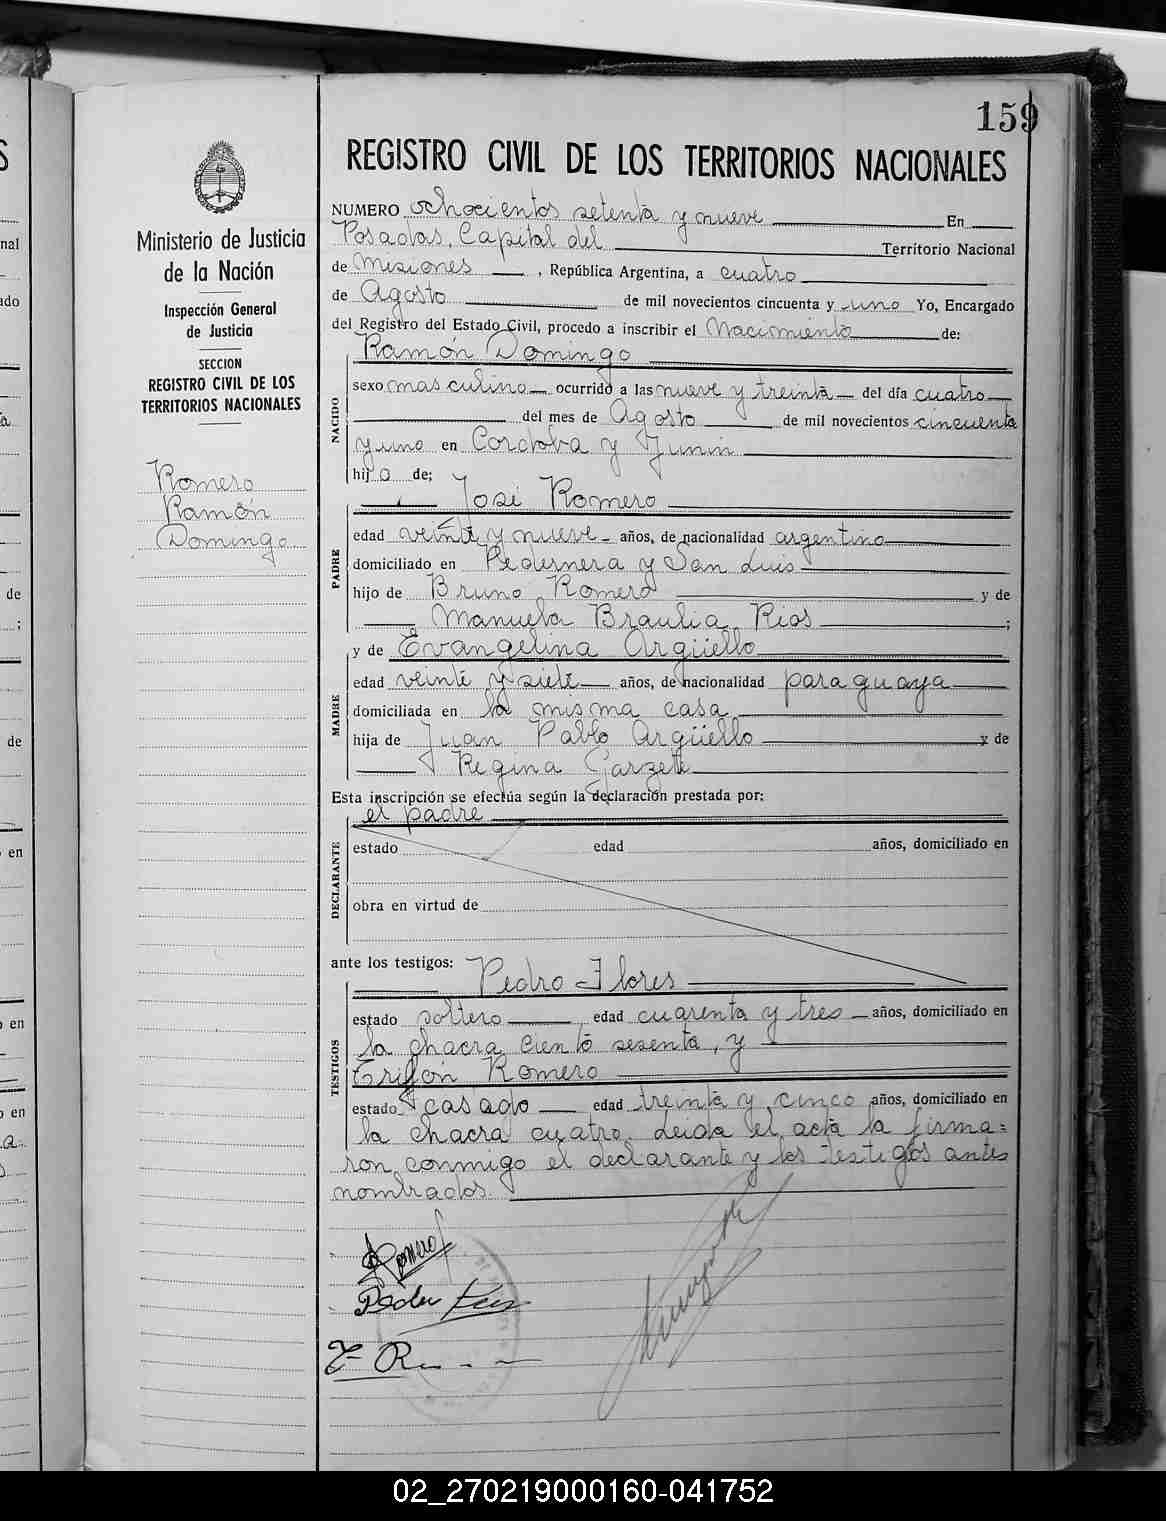 159
REGISTRO CIVIL DE LOS TERRITORIOS NACIONALES
Ministerio de Justicia
de la Nación
Inspección General
de Justicia
SECCION
REGISTRO CIVIL DE LOS
TERRITORIOS NACIONALES
Romero
Ramón
Domingo
NUMERO ochocientos setenta y nueve En
Posadas, Capital del Territorio Nacional
de Misiones, República Argentina, a cuatro
de Agosto de mil novecientos cincuenta y uno Yo, Encargado
del Registro del Estado Civil, procedo a inscribir el Nacimiento de:
Ramón Domingo
NACIDO
sexo masculino ocurrido a las nueve y treinta del día cuatro
del mes de Agosto de mil novecientos cincuenta
y uno en Cordoba y Junin
hijo de;
José Romero
PADRE
edad veinte y nueve años, de nacionalidad argentino
domiciliado en Pedernera y San Luis
hijo de Bruno Romero y de
Manuela Braulia Rios;
y de Evangelina Argüello
MADRE
edad veinte y siete años, de nacionalidad paraguaya
domiciliada en la misma casa
hija de Juan Pablo Argüello y de
Regina Garzete
Esta inscripción se efectúa según la declaración prestada por:
el padre
DECLARANTE
estado edad años, domiciliado en
obra en virtud de
ante los testigos: Pedro Flores
TESTIGOS
estado soltero edad cuarenta y tres años, domiciliado en
la chacra ciento sesenta, y
Trifón Romero
estado casado edad treinta y cinco años, domiciliado en
la chacra cuatro. Leida el acta la firma=
ron conmigo el declarante y los testigos antes
nombrados.
Romero
02_270219000160-041752